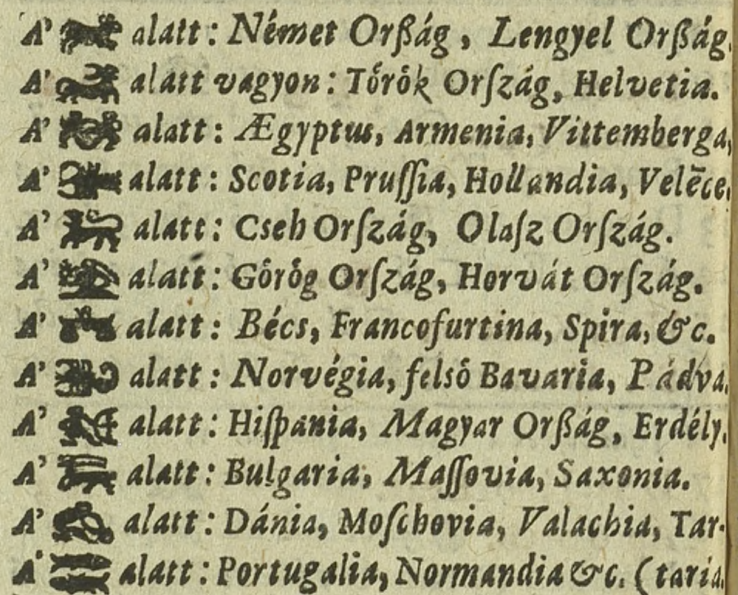 A' ♈ alatt: Német Orßág, Lengyel Orßág.
A' ♉ alatt vagyon: Tőrők Orſzág, Helvetia.
A' ♊ alatt: Ægyptus, Armenia, Vittemberga,
A' ♋ alatt: Scotia, Pruſſia, Hollandia, Velēce.
A' ♌ alatt: Cseh Orſzág, Olaſz Orſzág.
A' ♍ alatt: Gőrőg Orſzág, Horvát Orſzág.
A' ♎ alatt: Bécs, Francofurtina, Spira, &c.
A' ♏ alatt: Norvégia, felső Bavaria, Pádva.
A' ♐ alatt: Hiſpania, Magyar Orßág, Erdély.
A' ♑ alatt: Bulgaria, Maſſovia, Saxonia.
A' ♒ alatt: Dánia, Moſchovia, Valachia, Tar-
A' ♓ alatt: Portugalia, Normandia &c. (taria.